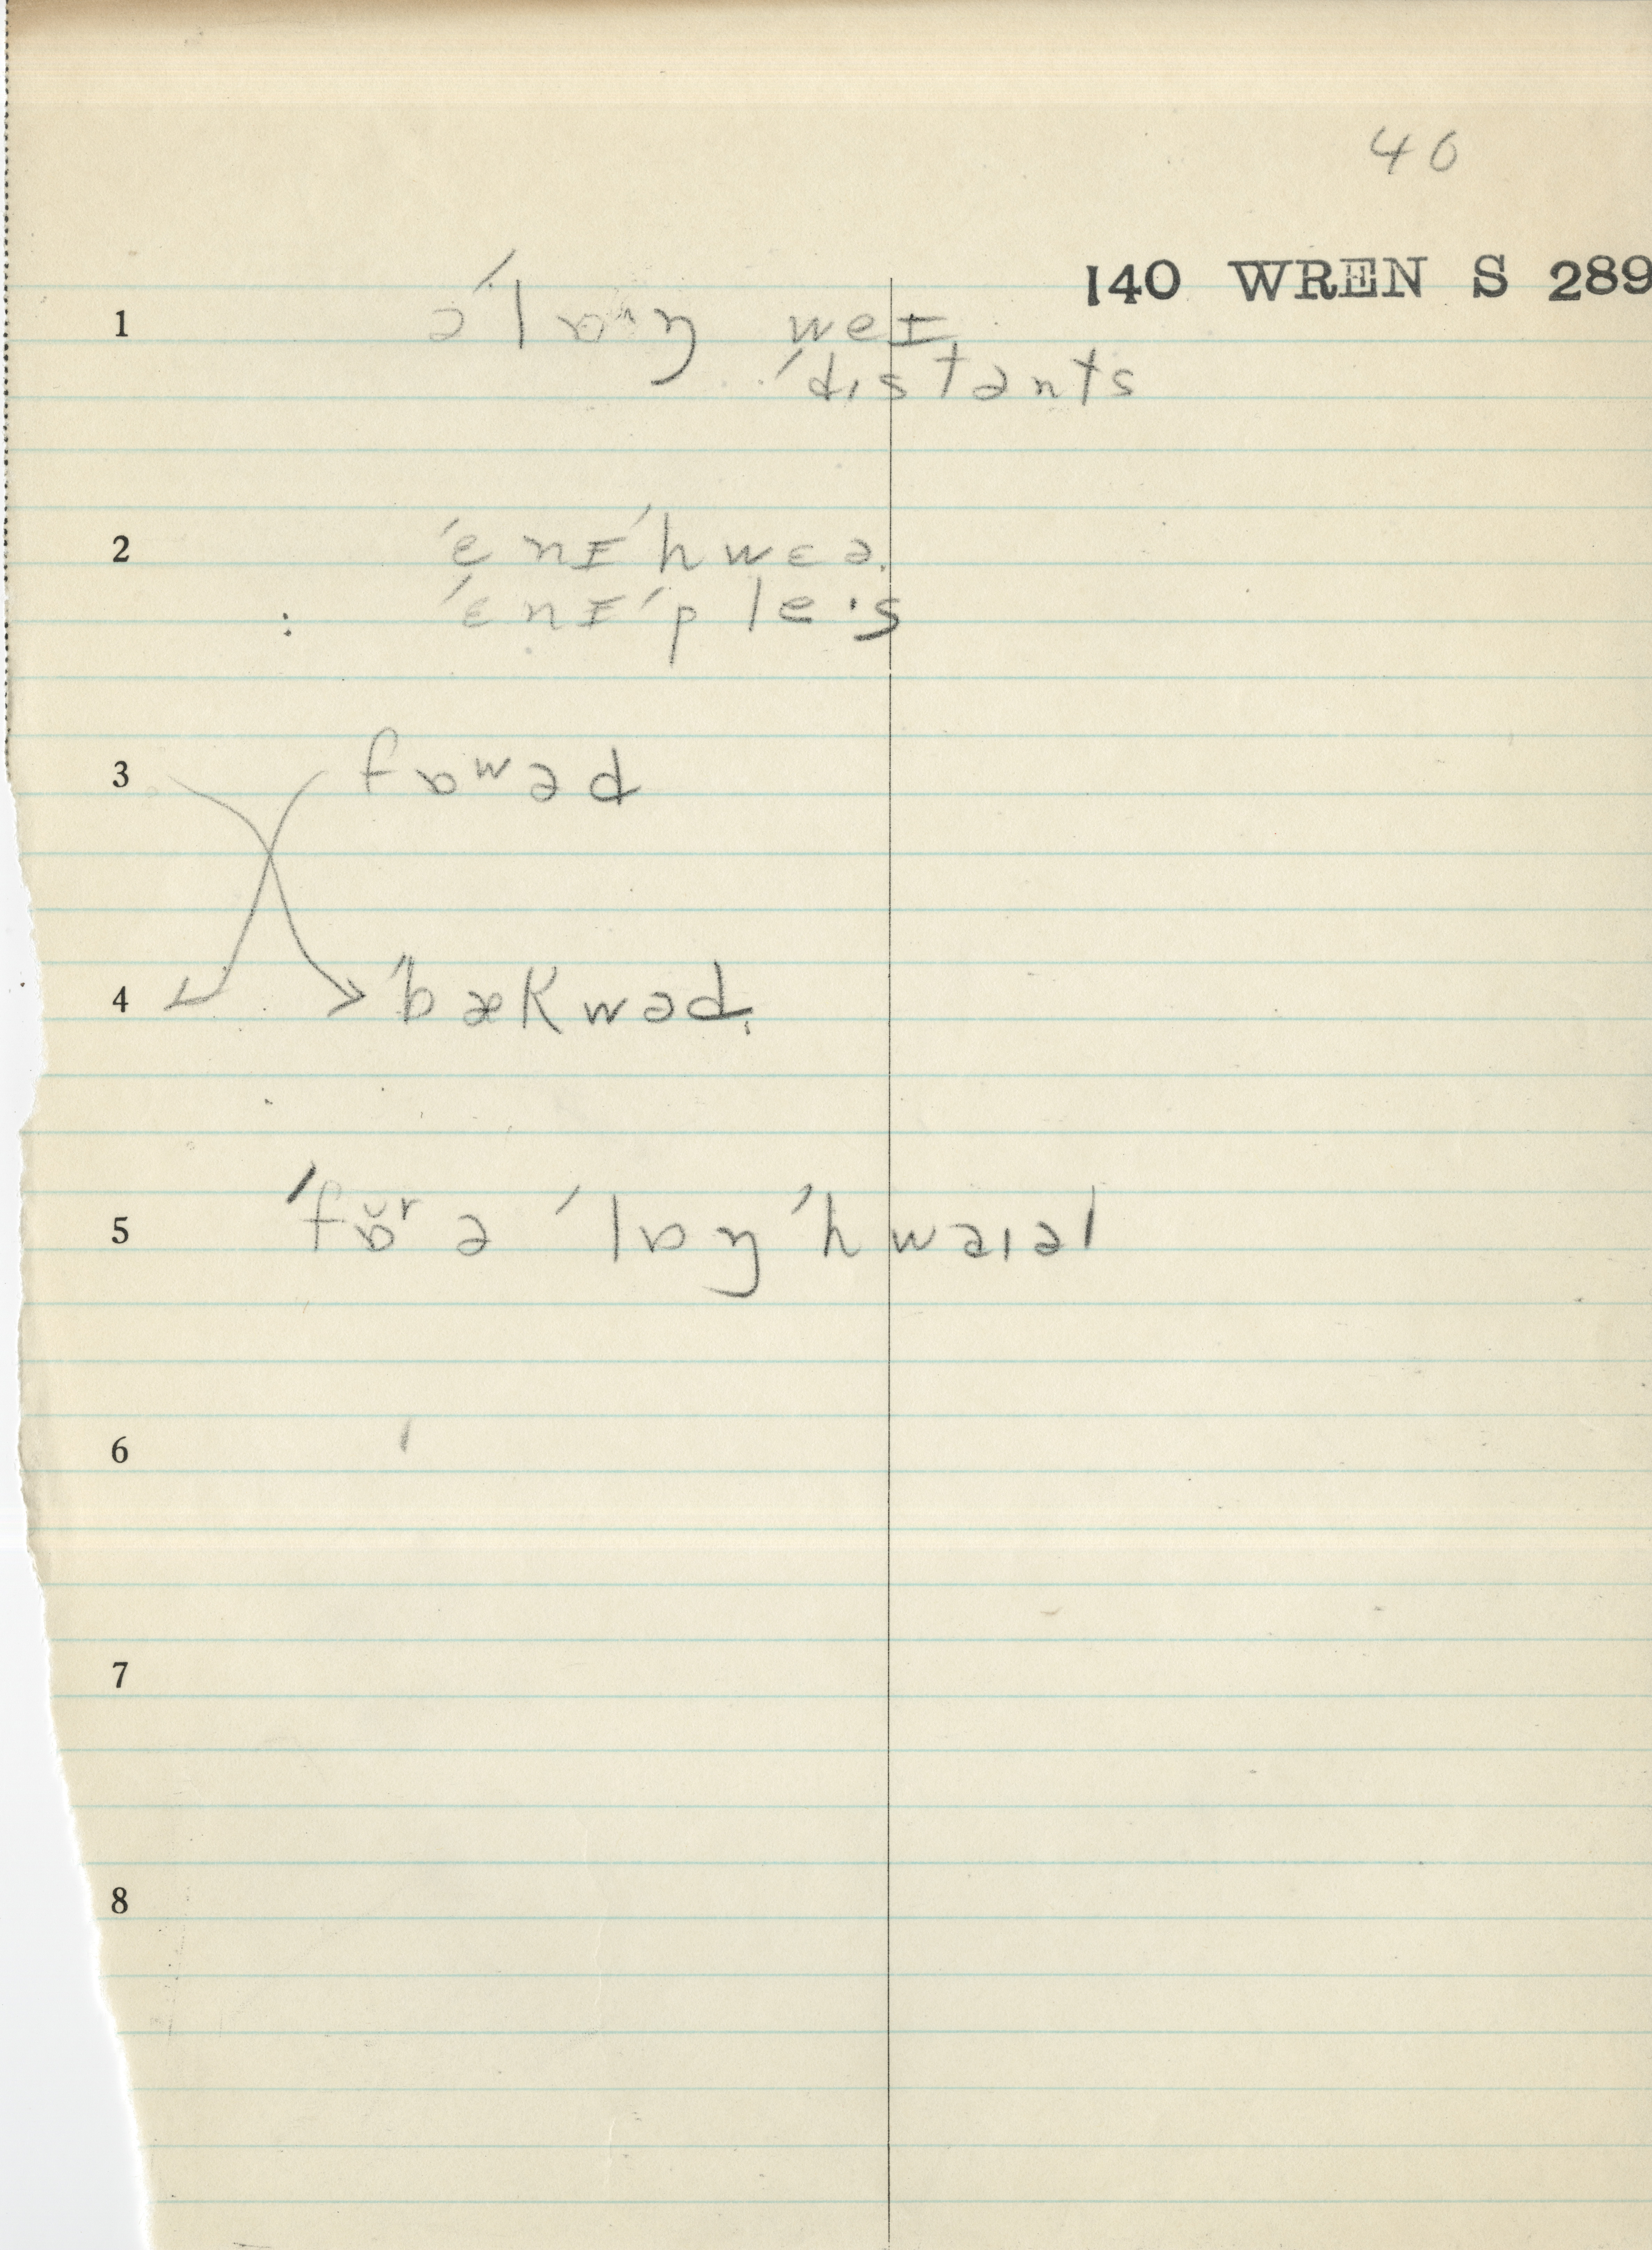 40
140 WREN S 289
1 ə ˈlɒˑŋ weɪ
ˈdɪstənts
2 ˈenɪˈhwɛə
ˈɛnɪˈpleɪs
3 fɒʷəd
4 ˈbækwəd
5 ˈfɒ̆ʳ ə ˈlɒŋ ˈhwaɪəl
6
7
8